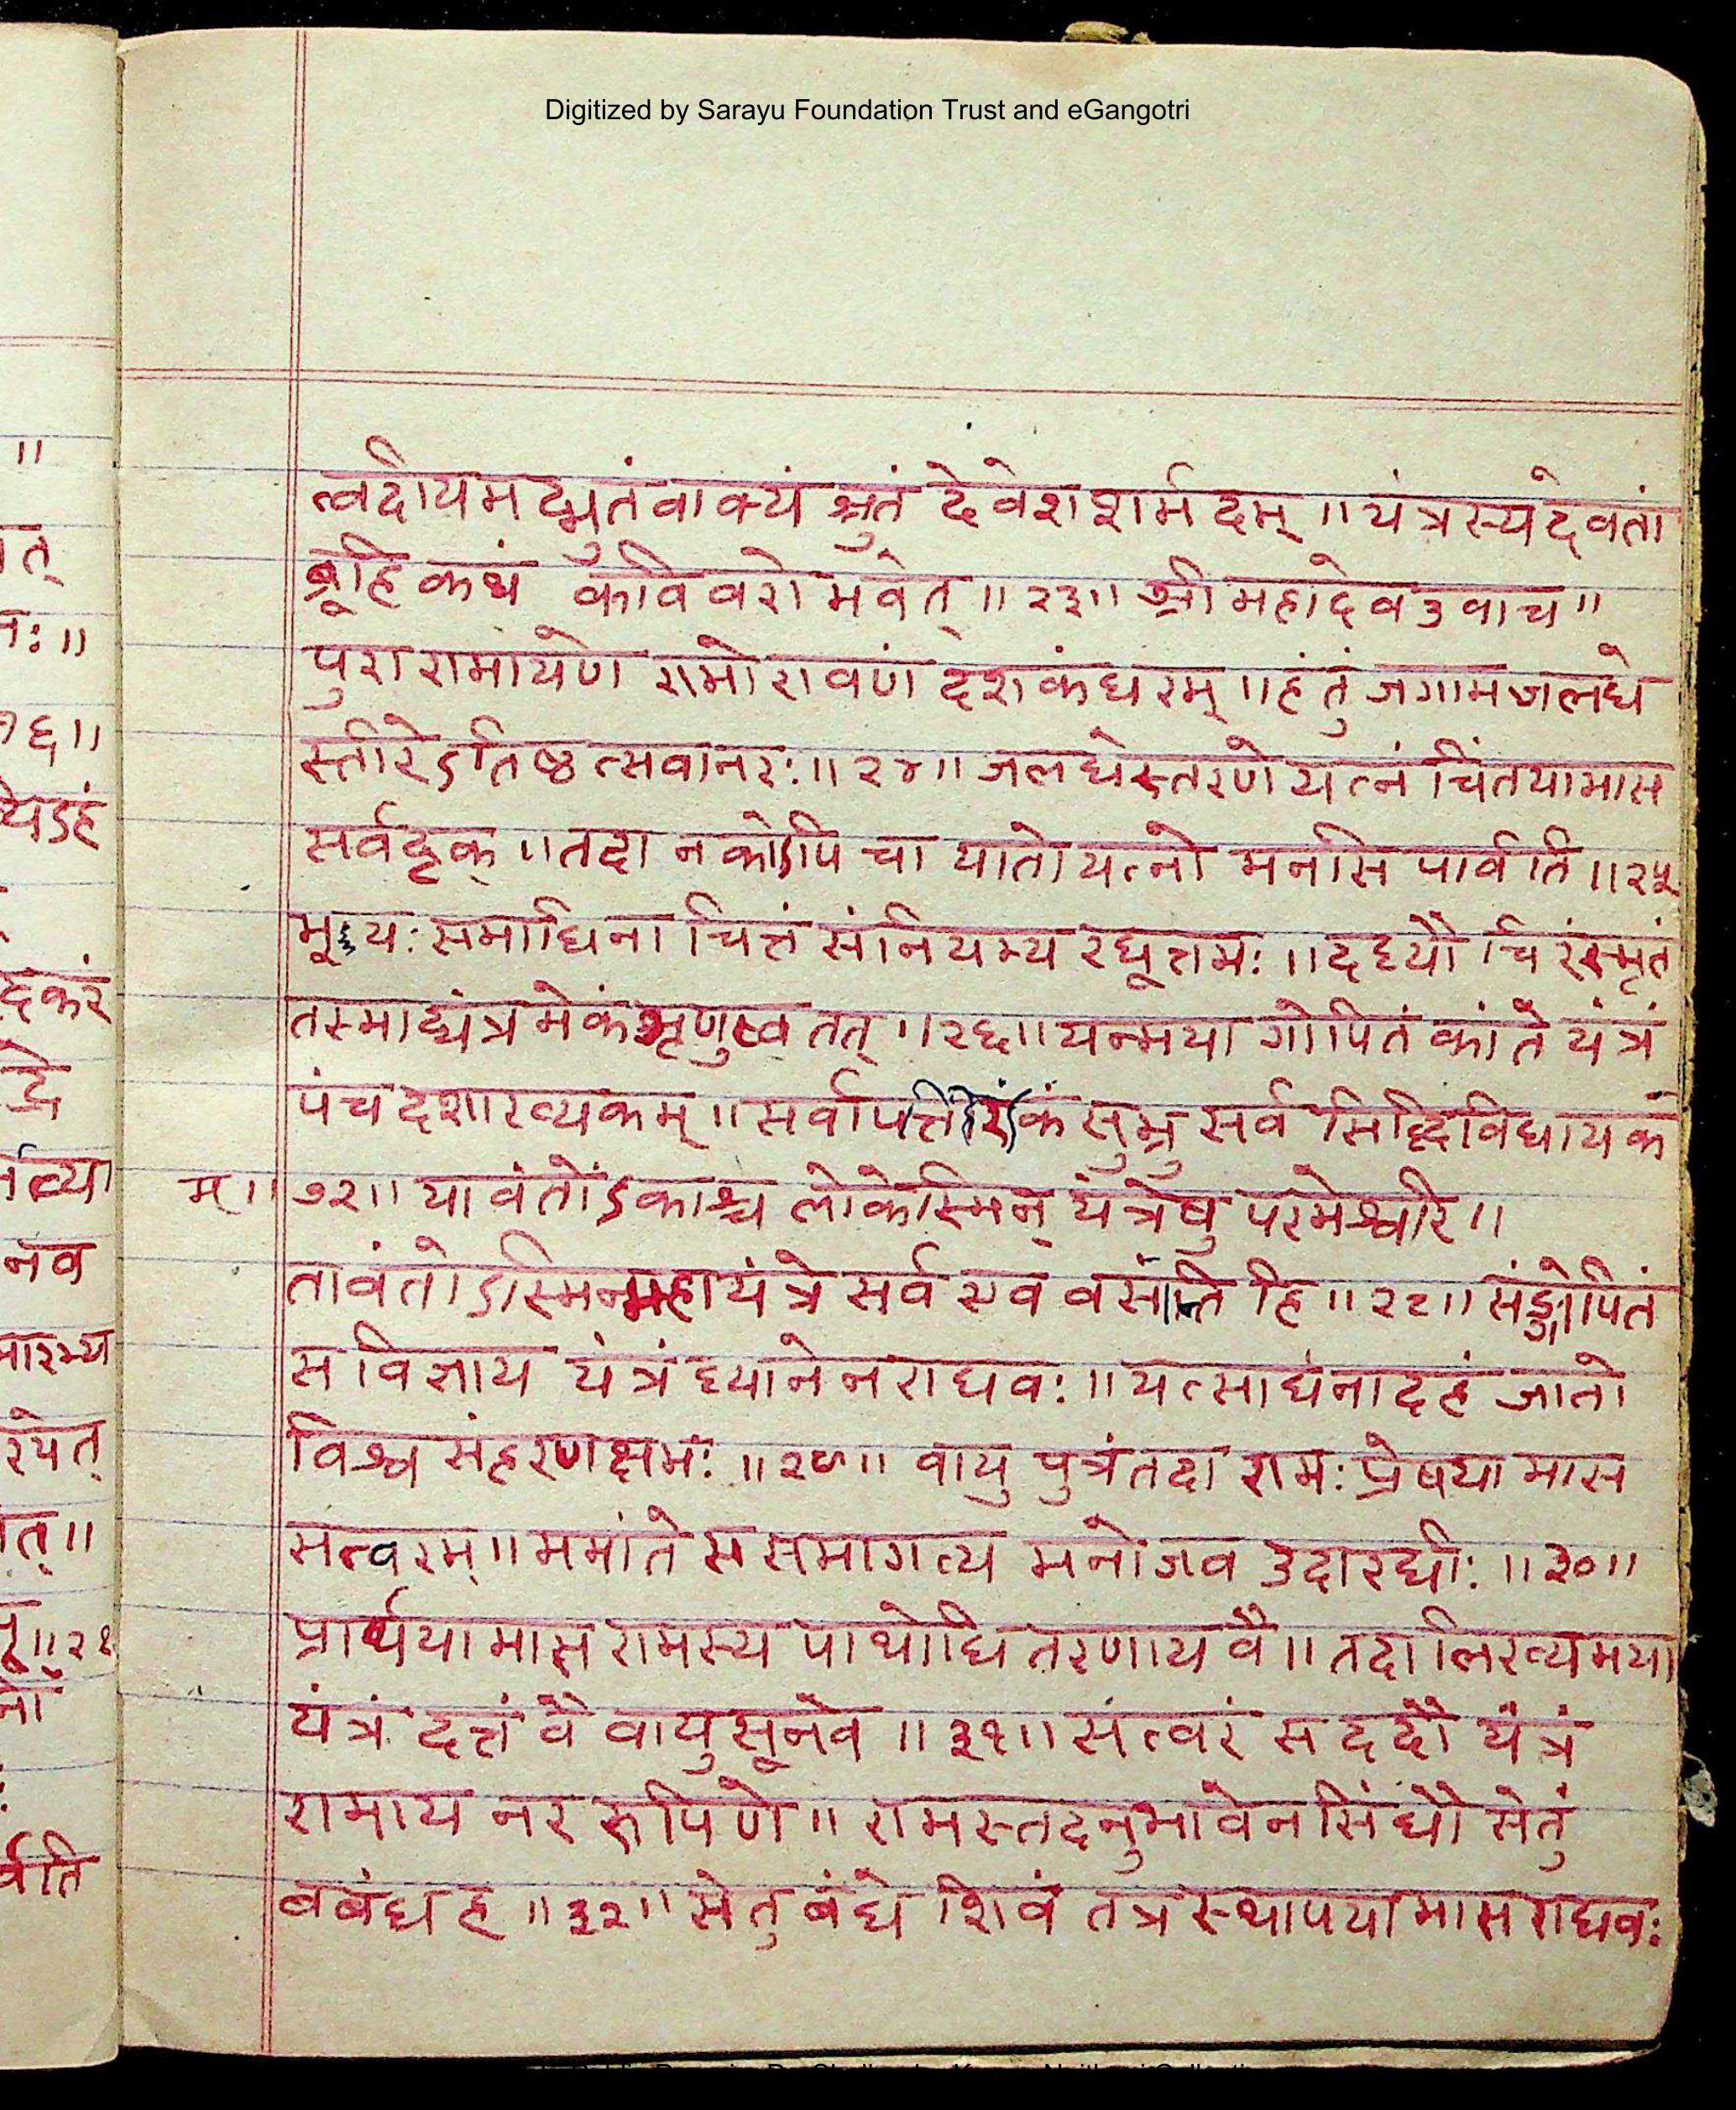 Digitized by Sarayu Foundation Trust and eGangotri
त्वदीयमद्भुतंवाक्यं श्रुतं देवेशशर्मदम् ॥ यंत्रस्यदेवतां
ब्रूहि कथं कविवरो भवेत् ॥२३॥ श्री महादेव उवाच ॥
पुरा रामायणे रामो रावणं दशकंधरम् ॥ हंतुं जगाम जलधे
स्तीरेऽतिष्ठत्सवानरः ॥२४॥ जलधेस्तरणे यत्नं चिंतयामास
सर्वदृक् ॥ तदा न कोऽपि चा यातो यत्नो मनसि पार्वति ॥२५
भूयः समाधिना चित्तं संनियम्य रघूत्तमः ॥ दध्यौ चिरंस्मृतं
तस्माद्यंत्रमेकं शृणुष्व तत् ॥२६॥ यन्मया गोपितं कांते यंत्रं
पंचदशाख्यकम् ॥ सर्वापत्ति कं सुभ्रु सर्व सिद्धिविधायक
म् ॥ ७२॥ यावंतोंऽकाश्च लोकेस्मिन् यंत्रेषु परमेश्वरि ॥
तावंतोऽस्मिन्महायंत्रे सर्व एव वसंति हि ॥२८॥ संङ्गोपितं
स विज्ञाय यंत्रं ध्यानेन राघवः ॥ यत्साधनादहं जातो
विश्व संहरणक्षमः ॥२९॥ वायु पुत्रं तदा रामः प्रेषयामास
सत्वरम् ॥ ममांते स समागत्य मनोजव उदारधीः ॥३०॥
प्रार्थयामास रामस्य पाथोधि तरणाय वै ॥ तदा लिख्य मया
यंत्रं दत्तं वै वायुसूनवे ॥३१॥ सत्वरं स ददौ यंत्रं
रामाय नर रूपिणे ॥ रामस्तदनुभावेन सिंधौ सेतुं
बबंध ह ॥३२॥ सेतु बंधे शिवं तत्र स्थापयामास राघवः